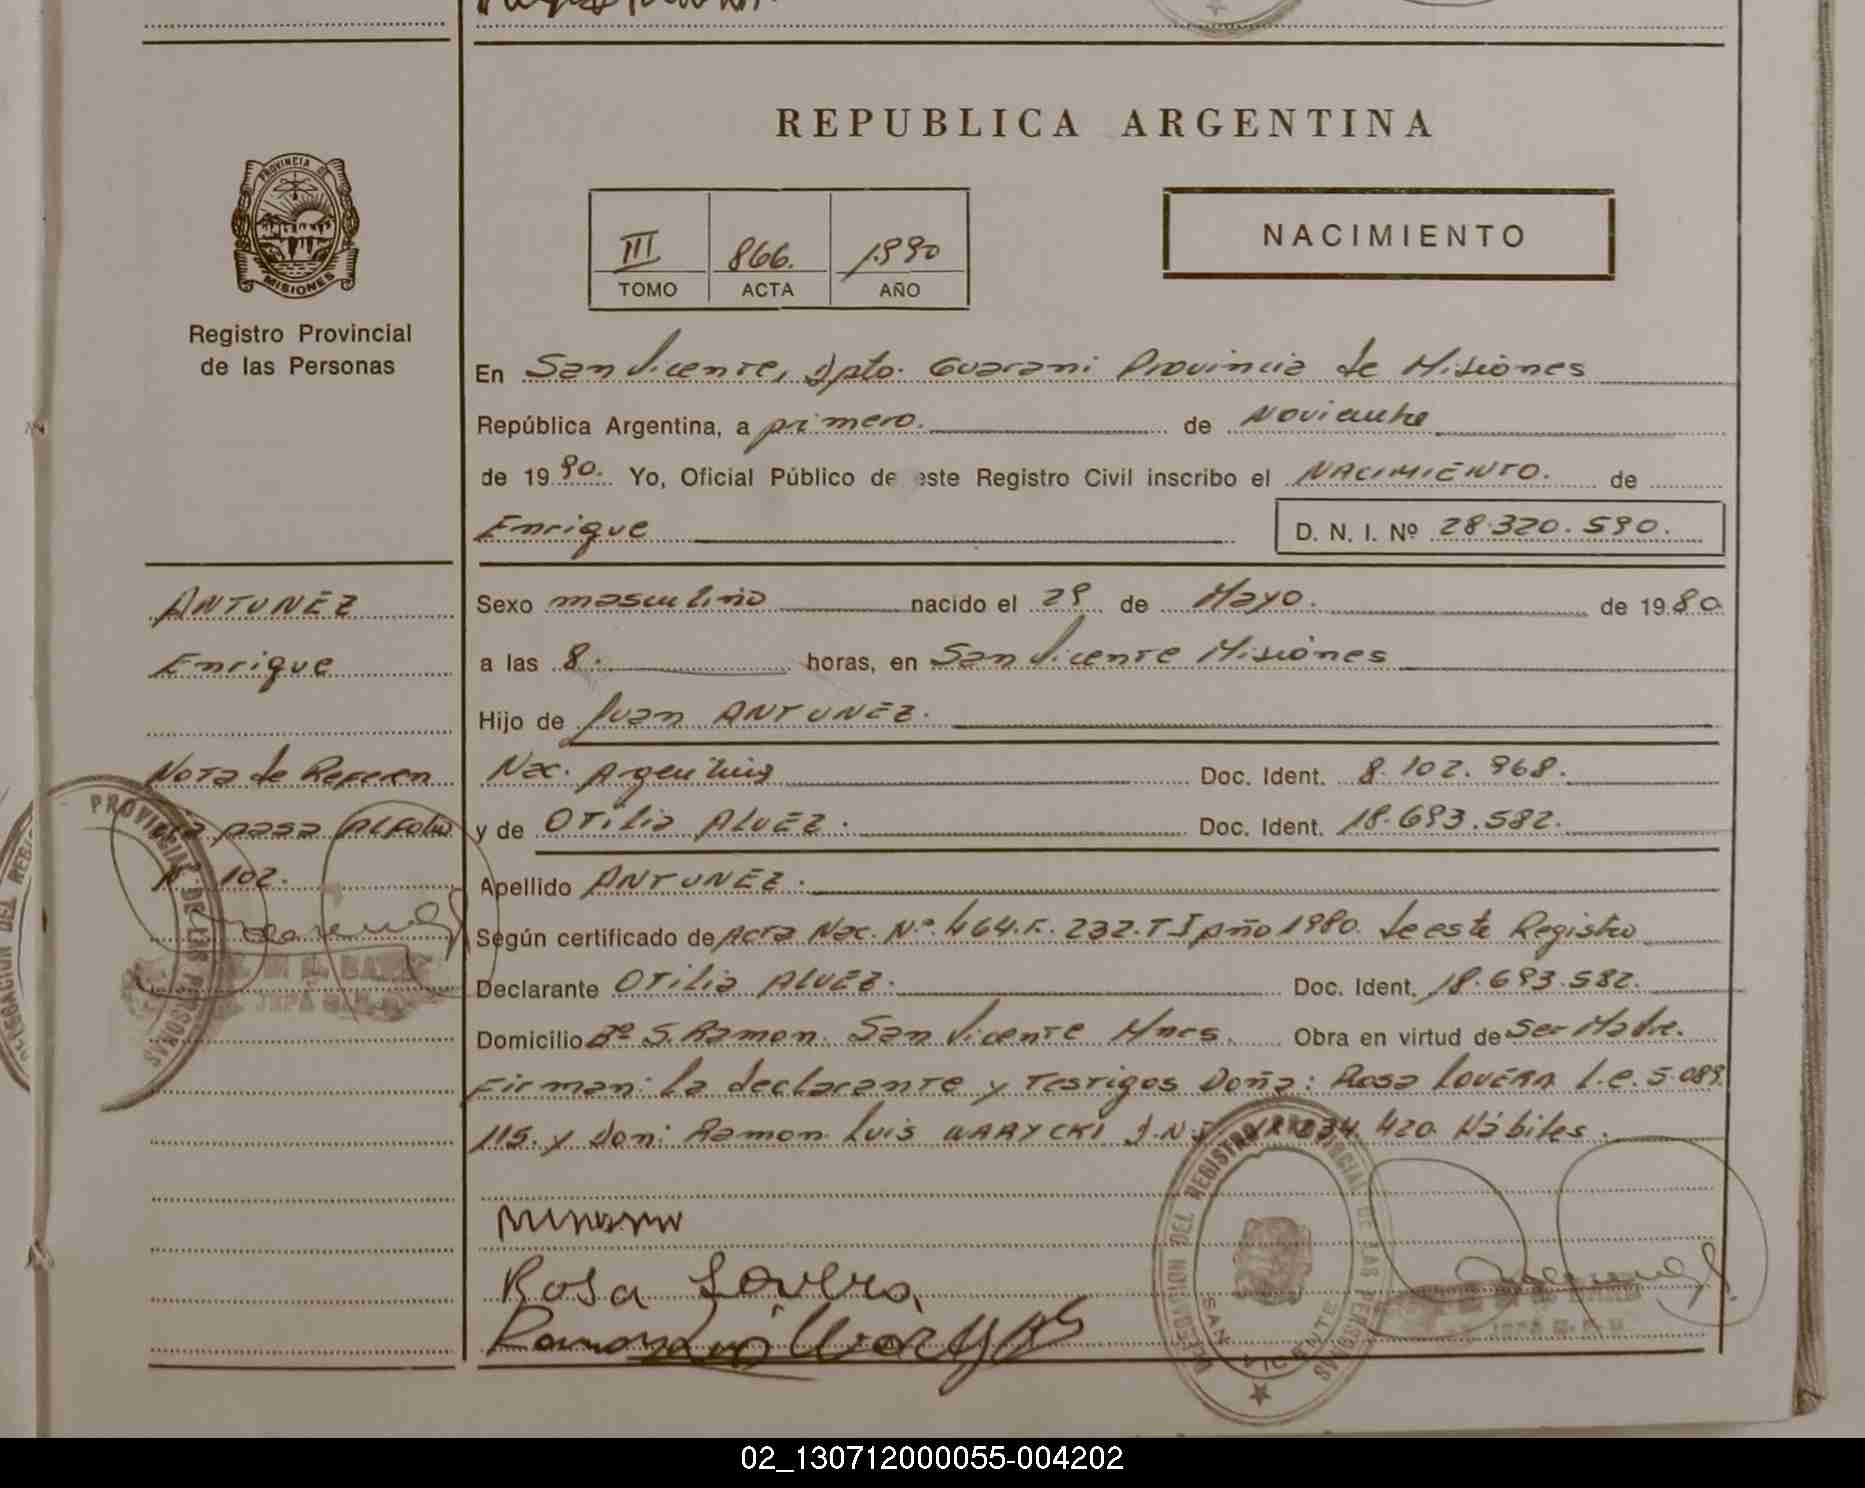 REPUBLICA ARGENTINA
PROVINCIA DE
MISIONES
Registro Provincial
de las Personas
III 866. 1990
TOMO ACTA AÑO
NACIMIENTO
En San Vicente, Dpto. Guarani Provincia de Misiones
República Argentina, a primero. de Noviembre
de 1990. Yo, Oficial Público de este Registro Civil inscribo el NACIMIENTO. de
Enrique D. N. I. Nº 28.320.590.
ANTUNEZ
Enrique
Nota de Referen
cia pasa al folio
Nº 102.
Sexo masculino nacido el 29 de Mayo. de 1980
a las 8. horas, en San Vicente Misiones
Hijo de Juan ANTUNEZ.
Nac. Argentina Doc. Ident. 8.102.968.
y de Otilia ALVEZ. Doc. Ident. 18.693.582.
Apellido ANTUNEZ.
Según certificado de Acta Nac. Nº 464.F. 232.T I año 1980. de este Registro
Declarante Otilia ALVEZ. Doc. Ident. 18.693.582.
Domicilio Bº S. Ramon. San Vicente Mnes. Obra en virtud de Ser Madre.
Firman: la declarante y Testigos Doña: Rosa LOVERA L.e. 5.089.
115. y Don: Ramon Luis WARYCKI D.N.I 234.420 Hábiles.
Rosa Lovera
Ramon Luis
DELEGACION DEL REGISTRO PROVINCIAL DE LAS PERSONAS
SAN VICENTE
PROVINCIAL DE LAS PERSONAS
DELEGACION DEL
02_130712000055-004202